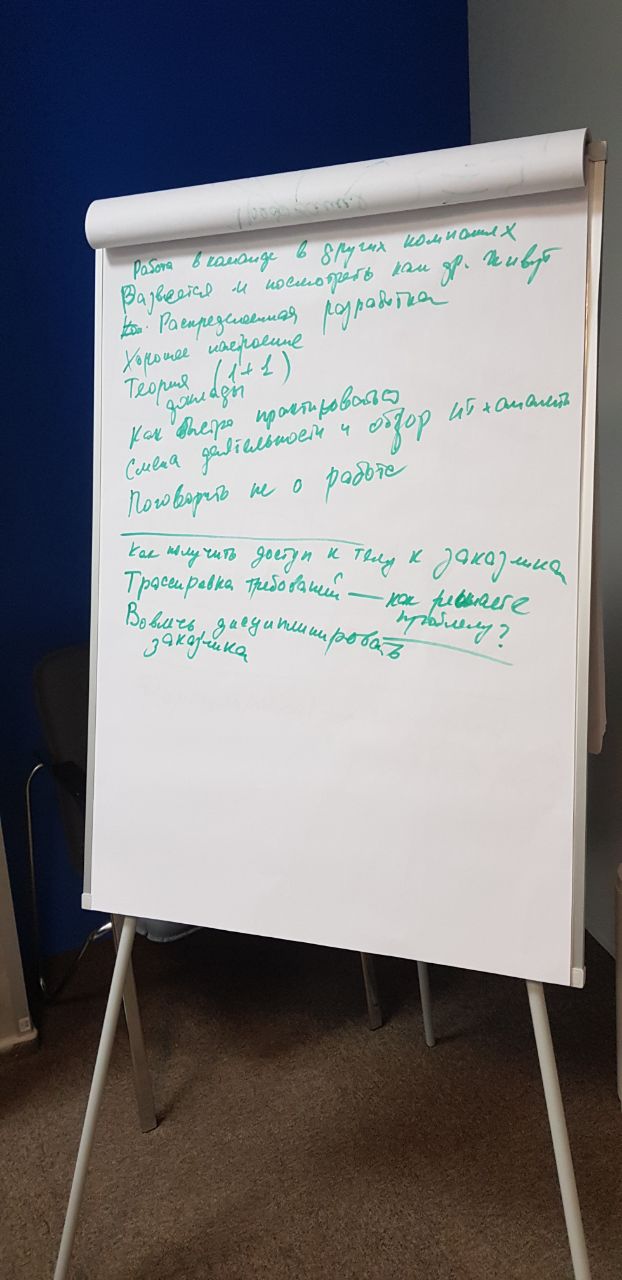 Работа в команде в других компаниях
Развеется и посмотреть как др. живут
Распределенная разработка
Хорошее настроение
Теория (1+1)
доклады
Как быстро практироваться
Смена деятельности и обзор ИТ +
Поговорить не о работе
Как получить доступ к телу к заказчика
Трассировка требований — как решаете
проблему?
Вовлечь дисциплинировать
заказчика